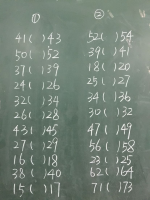 ①
41( )43
50( )52
37( )39
24( )26
32( )34
26( )28
43( )45
27( )29
16( )18
38( )40
15( )17
②
52( )54
39( )41
18( )20
25( )27
34( )36
30( )32
47( )49
56( )58
23( )25
62( )64
71( )73